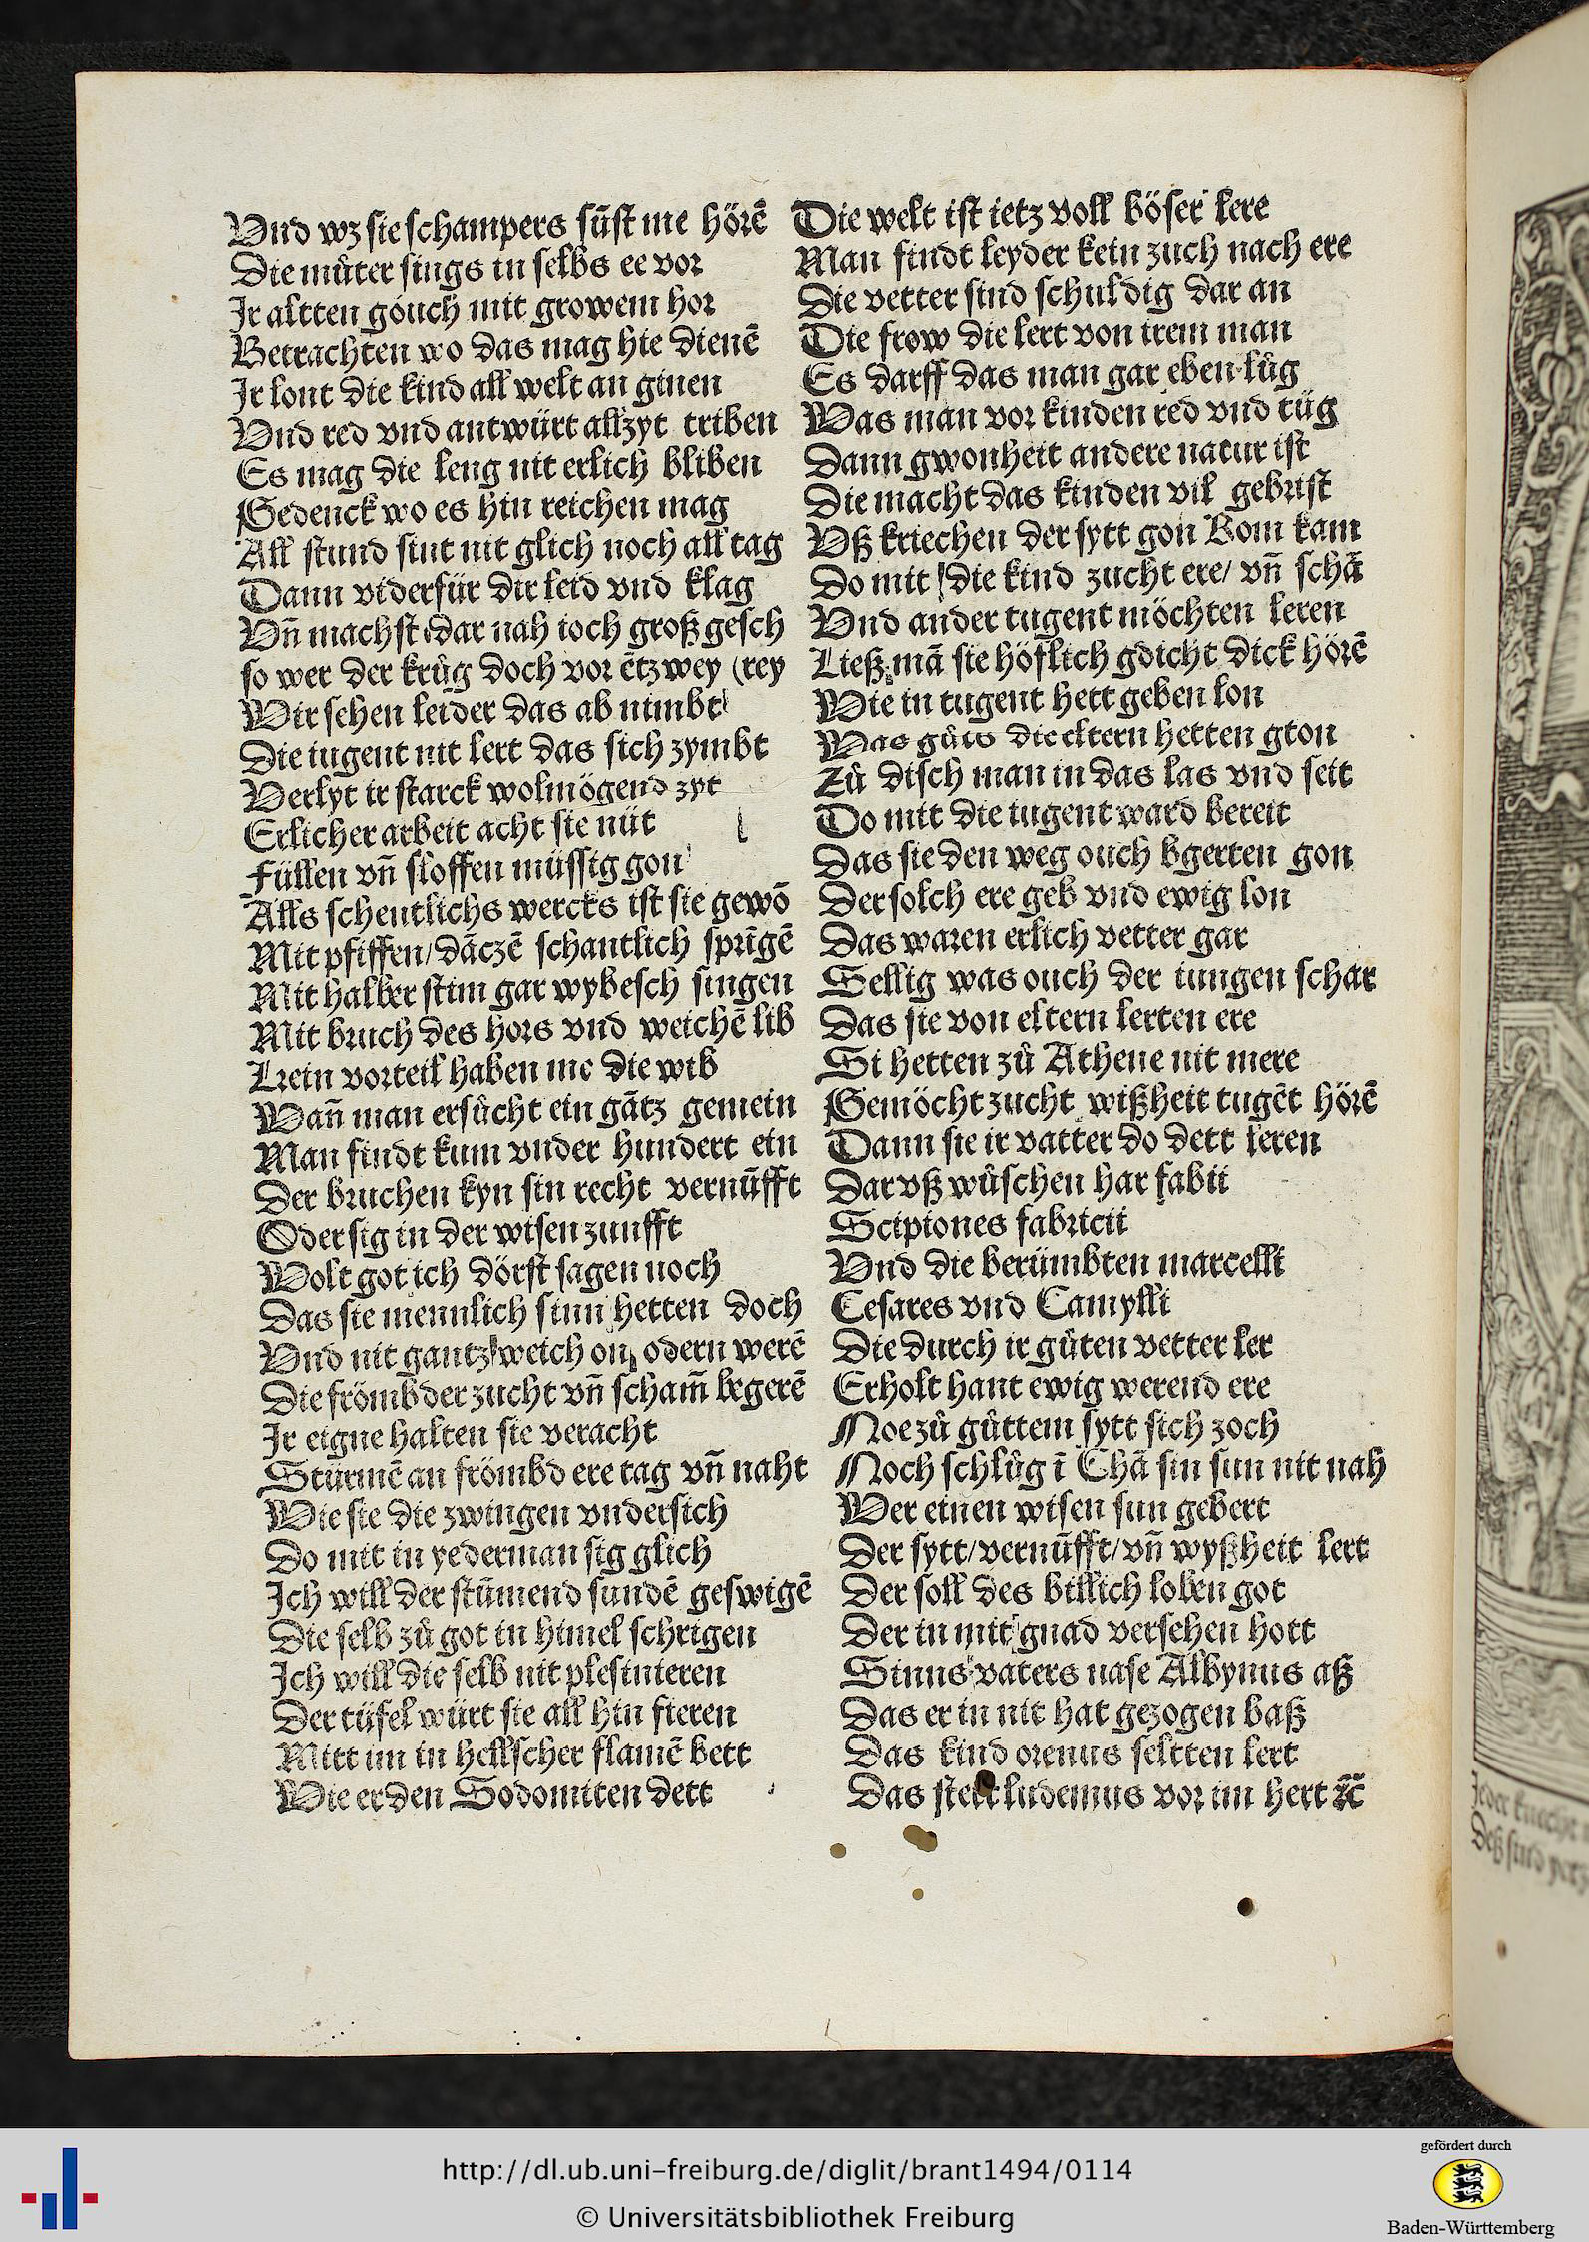 Vnd wz sie schampers sūst nie hörē
Die můter sings in selbs ee vor
Ir altten göuch mit growem hor
Betrachten wo das mag hie dienē
Ir lont die kind all welt an ginen
Vnd red vnd antwürt allzyt triben
Es mag die leng nit erlich bliben
Gedenck wo es hin reichen mag
All stund sint nit glich noch all tag
Dann widerfür dir leid vnd klag
Vn̄ machst dar nah ioch groß gesch
so wer der krůg doch vor ētzwey (rey
Wir sehen leider das ab nimbt
Die iugent nit lert das sich zymbt
Verlyt ir starck wolmögend zyt
Erlicher arbeit acht sie nüt
Füllen vn̄ sloffen müssig gon
Alls schentlichs wercks ist sie gewō
Mit pfiffen/ dāczē schantlich sprīgē
Mit halber stim gar wybesch singen
Mit bruch des hors vnd weichē lib
Kein vorteil haben me die wib
Wan̄ man ersůcht ein gātz gemein
Man findt kum vnder hundert ein
Der bruchen kyn sin recht vernūfft
Oder sig in der wisen zunfft
Wolt got ich dörst sagen noch
Das sie mennlich sinn hetten doch
Vnd nit gantz weich on odern werē
Die frömbder zucht vn̄ scham̄ begerē
Ir eigne halten sie veracht
Stürmē an frömbd ere tag vn̄ naht
Wie sie die zwingen vndersich
Do mit in yederman sig glich
Ich will der stūmend sundē geswigē
Die selb zů got in himel schrigen
Ich will die selb nit plesinieren
Der tüfel würt sie all hin fieren
Mitt im in hellscher flamē bett
Wie er den Sodomiten dett
Die welt ist ietz voll böser lere
Man findt leyder kein zuch nach ere
Die vetter sind schuldig dar an
Die frow die lert von irem man
Es darff das man gar eben lůg
Was man vor kinden red vnd tüg
Dann gwonheit andere natur ist
Die macht das kinden vil gebrist
Vß kriechen der sytt gon Rom kam
Do mit die kind zucht ere/ vn̄ schā
Vnd ander tugent möchten leren
Ließ mā sie höflich gdicht dick hörē
Wie in tugent hett geben lon
Was gůts die eltern hetten gton
Zů disch man in das las vnd seit
Do mit die iugent ward bereit
Das sie den weg ouch bgerten gon
Der solch ere geb vnd ewig lon
Das waren erlich vetter gar
Sellig was ouch der iungen schar
Das sie von eltern lerten ere
Si hetten zů Athene nit mere
Gemöcht zucht wißheit tugēt hörē
Dann sie ir vatter do dett leren
Dar vß wůschen har fabii
Scipiones fabricii
Vnd die berümbten marcelli
Cesares vnd Camylli
Die durch ir gůten vetter ler
Erholt hant ewig werend ere
Noe zů gůttem sytt sich zoch
Noch schlůg ī Chā sin sun nit nah
Wer einen wisen sun gebert
Der sytt/ vernūfft/ vn̄ wyßheit lert
Der soll des billich loben got
Der in mit gnad versehen hott
Sinns vaters nase Albynus aß
Das er in nit hat gezogen baß
Das kind oremus seltten lert
Das stett ludemus vor im hert ꝛc̄
http://dl.ub.uni-freiburg.de/diglit/brant1494/0114
© Universitätsbibliothek Freiburg
gefördert durch
Baden-Württemberg